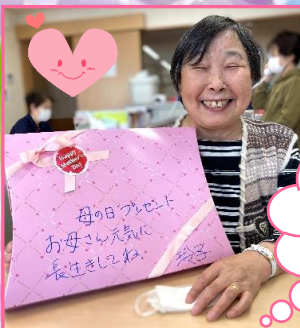 Happy
Mother's
Day
母の日プレゼント
お母さん元気に
長生きしてね。